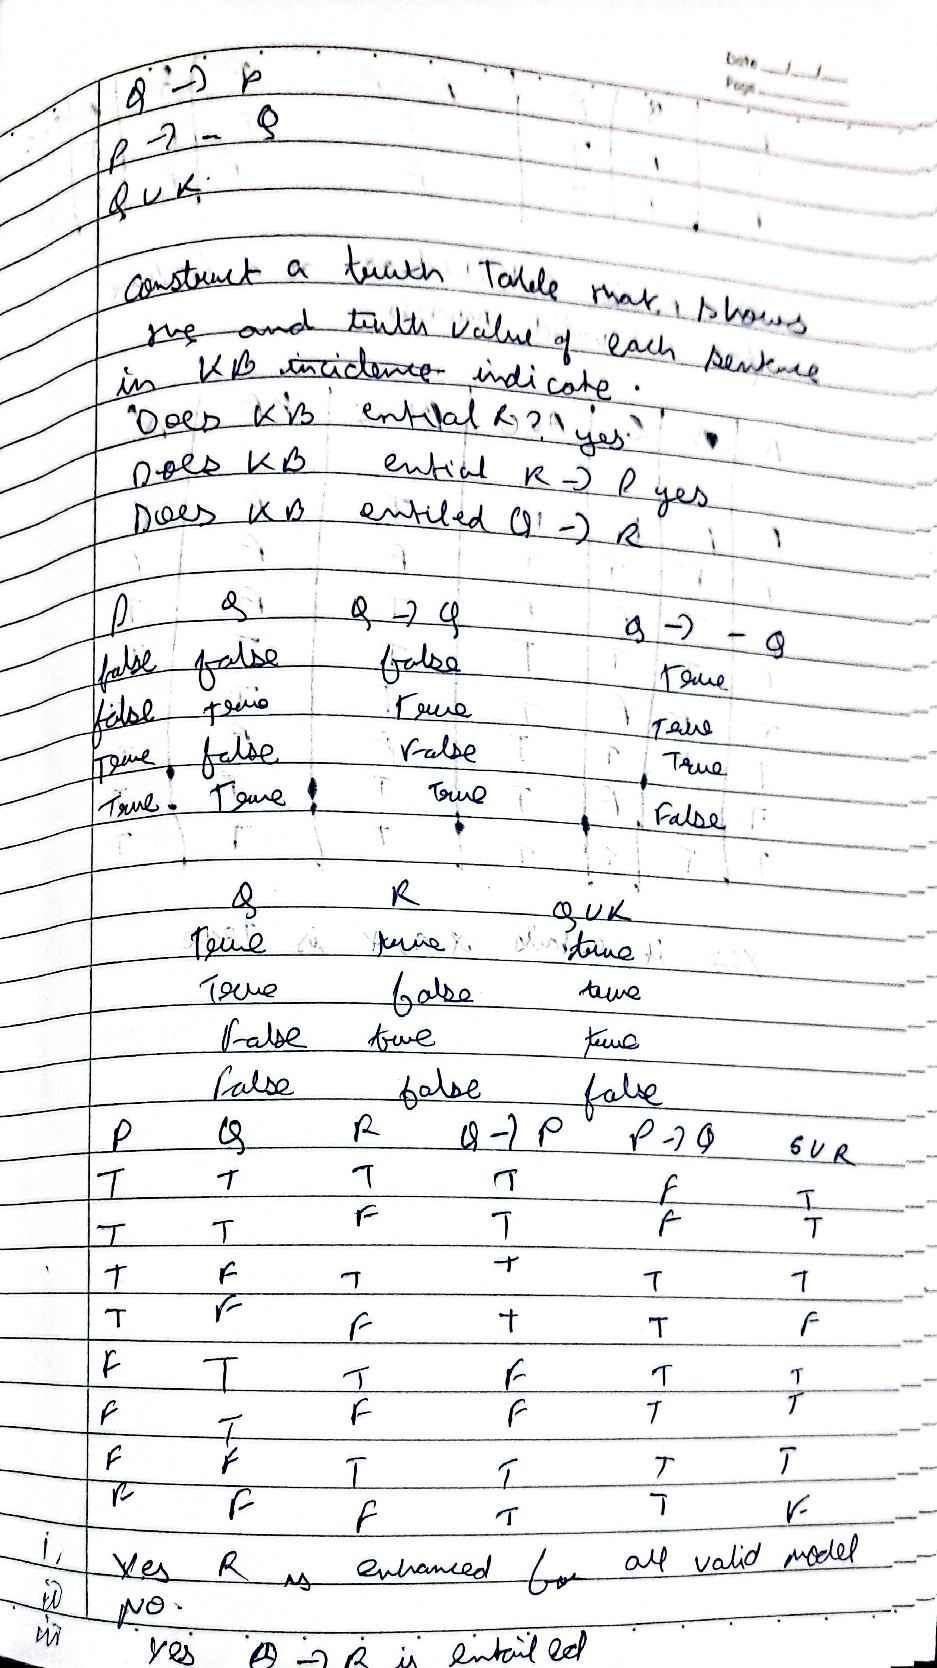 Date __/__/__
Page
Q → P
P → - Q
Q U K.
construct a truth Table that, shows
the and truth value of each sentence
in KB incidence indicate.
Does KB entilal R? yes
Does KB ential R → P yes
Does KB entiled Q → R
P Q Q → Q Q → - Q
false false false True
false True True True
True false False True
True True True False
Q R Q U K
True true true
True false true
False true true
False false false
P Q R Q → P P → Q S U R
T T T T F T
T T F T F T
T F T T T T
T F F T T F
F T T F T T
F T F F T T
F F T T T T
F F F T T F
i, Yes R is enhanced for all valid model
ii) NO.
iii yes Q → R is entailed